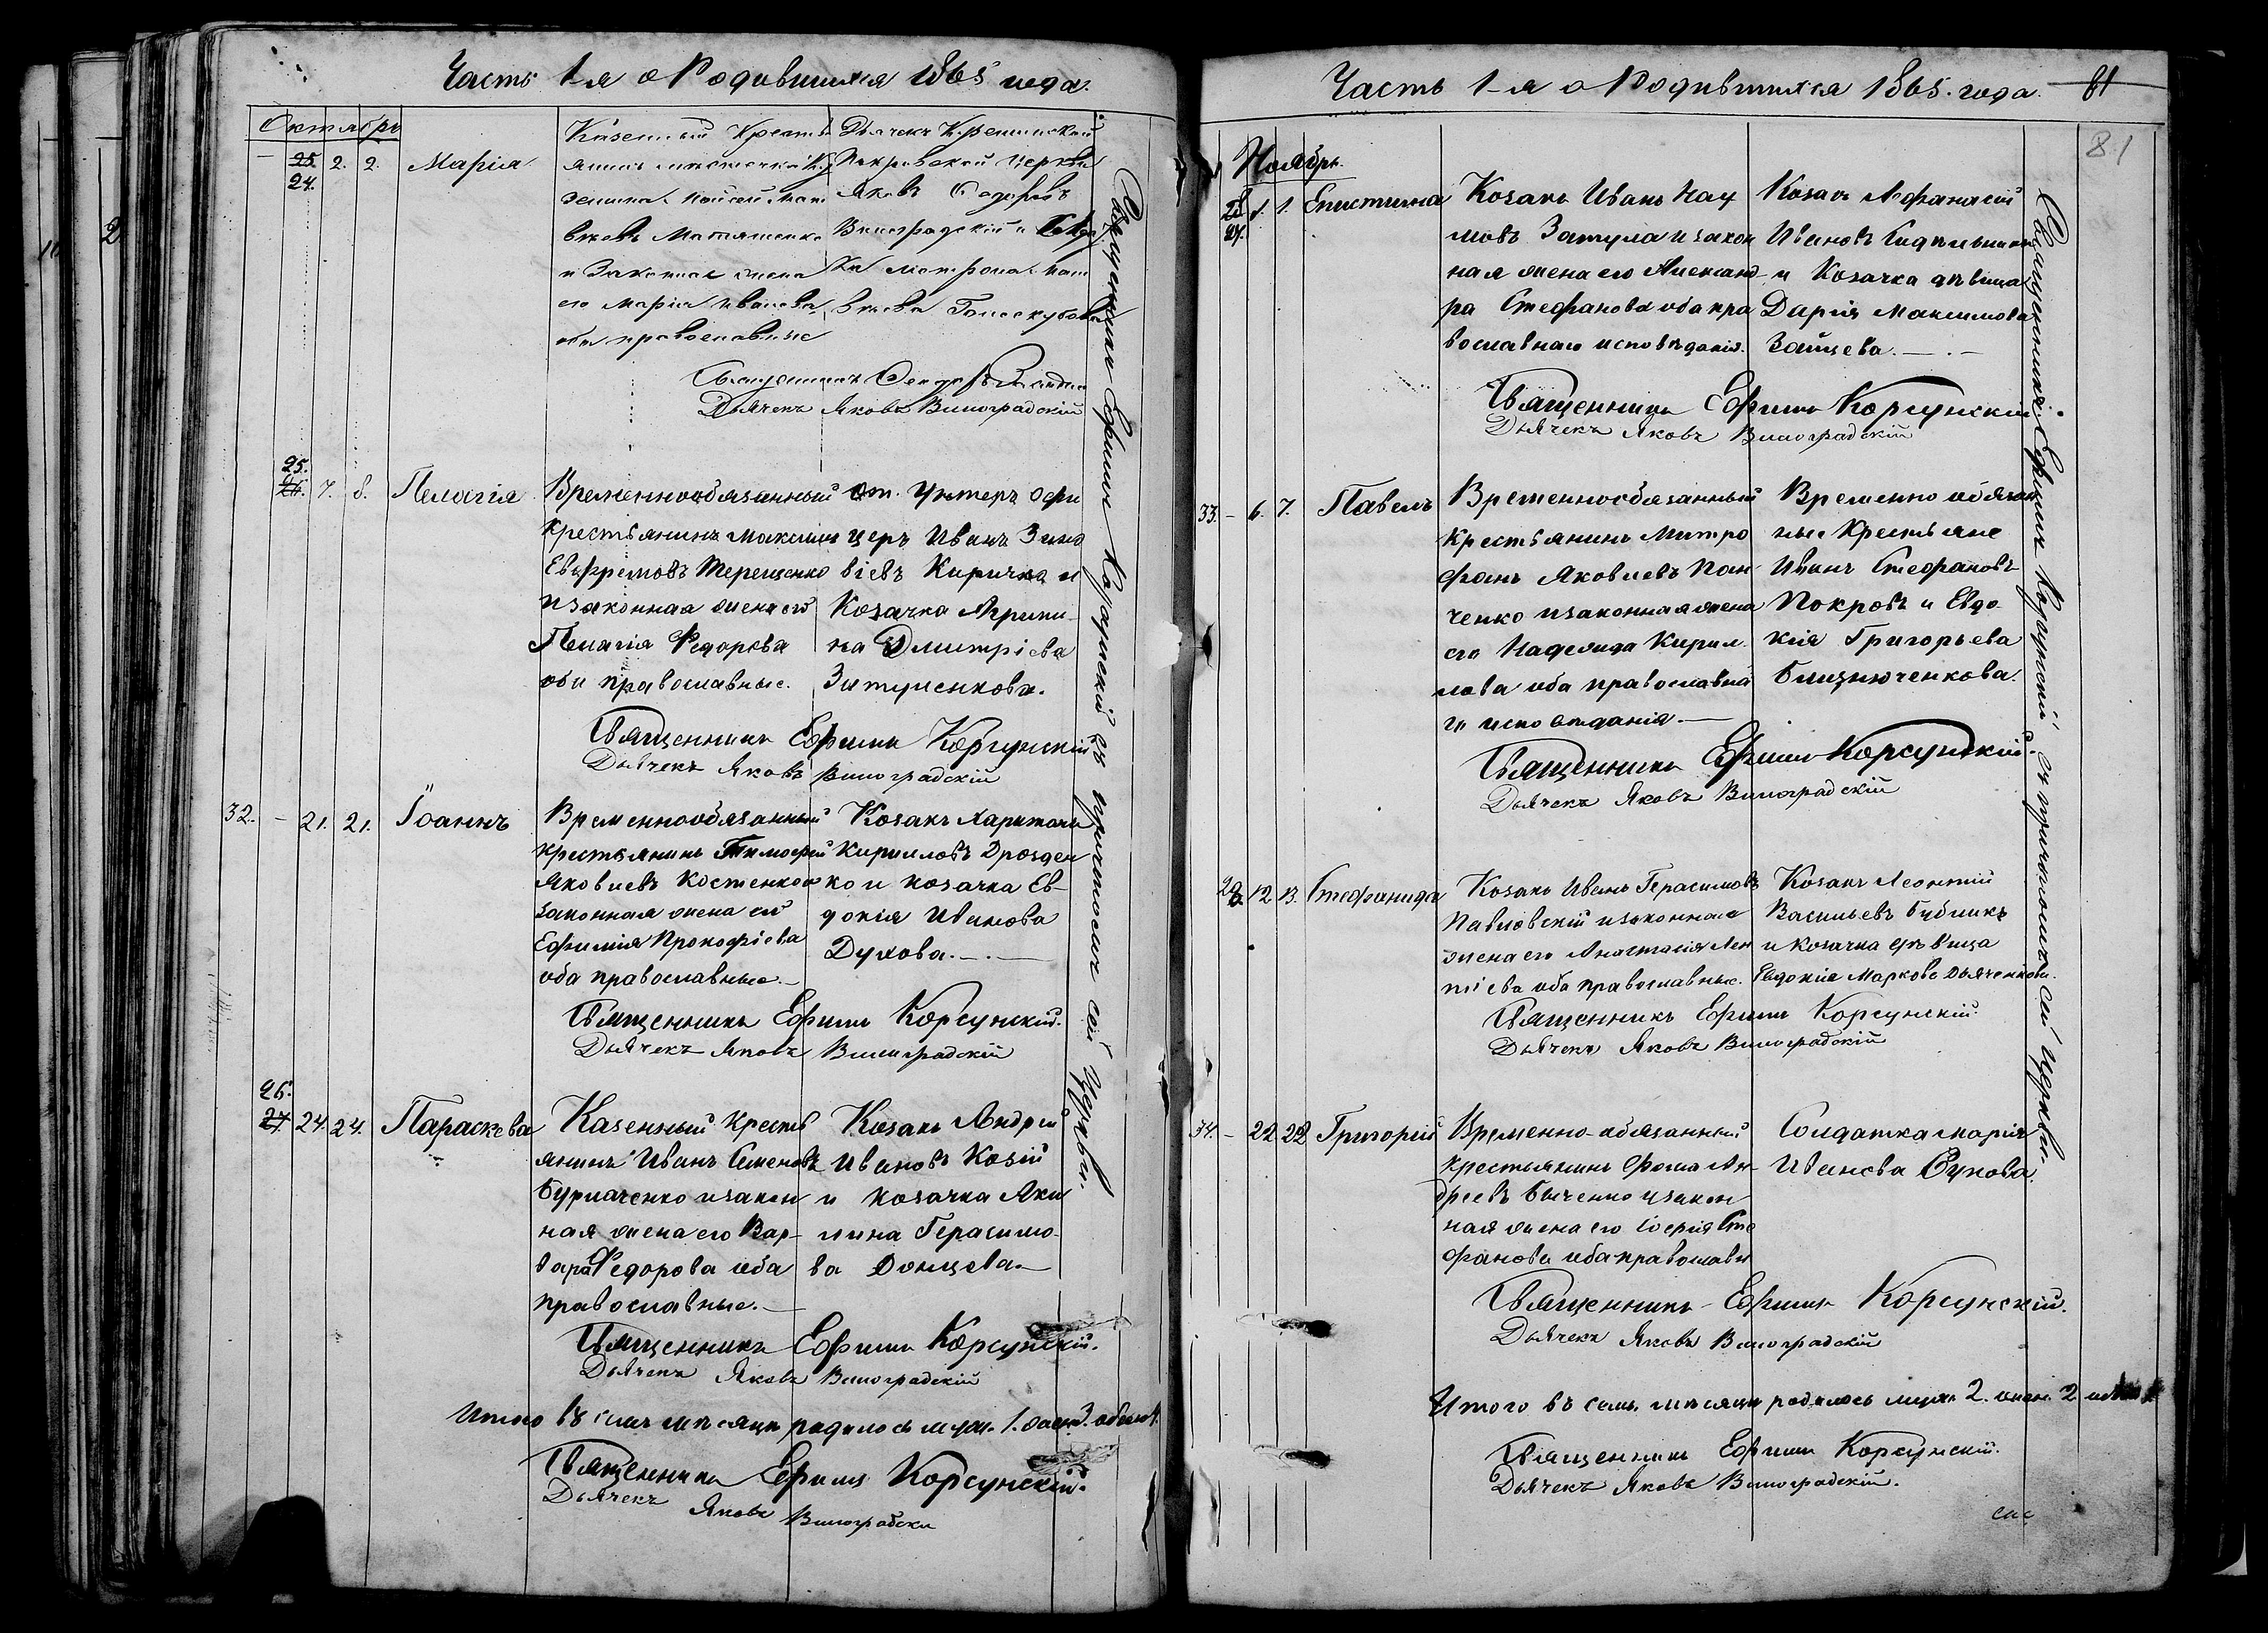 Часть 1-я о Родившихся 1865 года.
Октябрь
25. 24. 2. 2. Марія
Казенный Кресть
янинъ местечка
Моисей Мат
вѣевъ Матяшенко
и Законная жена
его Марія Иванова
оба православные
Дьячекъ
Покровской Церкви
Яковъ Ѳедоровъ
Виноградскій и
Матрона Мат
вѣева
Священникъ
Дьячекъ Яковъ Виноградскій
25. 26. 7. 8. Пелагія
Временнообязанный
крестьянинъ Максимъ
Евфремовъ Терещенко
и законная жена его
Пелагія Федорова
оба православные.
от. Унтеръ офи
церъ Иванъ Зино
віевъ Киричка и
Козачка Агрипи-
на Дмитріева
Затуленкова.
Священникъ Ефимъ Корсунскій
Дьячекъ Яковъ Виноградскій
32. - 21. 21. Іоаннъ
Временнообязанный
крестьянинъ Тимофей
Яковлевъ Костенко и
законная жена его
Ефимія Прокофіева
оба православные.
Козакъ Харитонъ
Кирилловъ Дрозден
ко и козачка Ев-
докія Иванова
Духова.
Священникъ Ефимъ Корсунскій.
Дьячекъ Яковъ Виноградскій
26. 27. 24. 24. Параскева
Казенный кресть
янинъ Иванъ Семеновъ
Бурлаченко и закон
ная жена его Вар-
вара Федорова оба
православные.
Козакъ Андрей
Ивановъ Козій
и козачка Аки
лина Герасимо-
ва Донцева.
Священникъ Ефимъ Корсунскій.
Дьячекъ Яковъ Виноградскій
Итого въ семъ мѣсяцѣ родилось муж. 1. жен. 3. обоего 4.
Священникъ Ефимъ Корсунскій.
Дьячекъ Яковъ Виноградски
Священникъ Ефимъ Корсунскій съ причтомъ сей Церкви.
Часть 1-я о Родившихся 1865. года. 81
81
Ноябрь.
28 27. 1. 1. Епистимиа
Козакъ Иванъ Нау
мовъ Затула и закон
ная жена его Александ-
ра Стефанова оба пра
вославнаго исповѣданія.
Козакъ Афанасій
Ивановъ
и Козачка дѣвица
Дарія Максимова
Зайцева.
Священникъ Ефимъ Корсунскій.
Дьячекъ Яковъ Виноградскій
33. - 6. 7. Павелъ
Временнообязанный
Крестьянинъ Митро
фанъ Яковлевъ Пан
ченко и законная жена
его Надежда Кирил-
лова оба православна
го исповѣданія.
Временно обязан
ные Крестьяне
Иванъ Стефановъ
Покровъ и Евдо-
кія Григорьева
Близнюченкова.
Священникъ Ефимъ Корсунскій.
Дьячекъ Яковъ Виноградскій
28. 12. 13. Стефанида
Козакъ Иванъ Герасимовъ
Павловскій и законная
жена его Анастасія Леон
тіева оба православные.
Козакъ Леонтій
Васильевъ Бублик
и козачка дѣвица
Евдокія Маркова Дьяченкова.
Священникъ Ефимъ Корсунскій.
Дьячекъ Яковъ Виноградскій
34. - 22 22 Григорій
Временно-обязанный
крестьянинъ Фома Ан-
дреевъ Быченко и закон
ная жена его Софія Сте
фанова оба православн
Солдатка Марія
Иванова Сукова.
Священникъ Ефимъ Корсунскій.
Дьячекъ Яковъ Виноградскій
Итого въ семъ мѣсяцѣ родилось муж. 2. жен. 2
Священникъ Ефимъ Корсунскій.
Дьячекъ Яковъ Виноградскій.
Священникъ Ефимъ Корсунскій съ причтомъ сей Церкви.